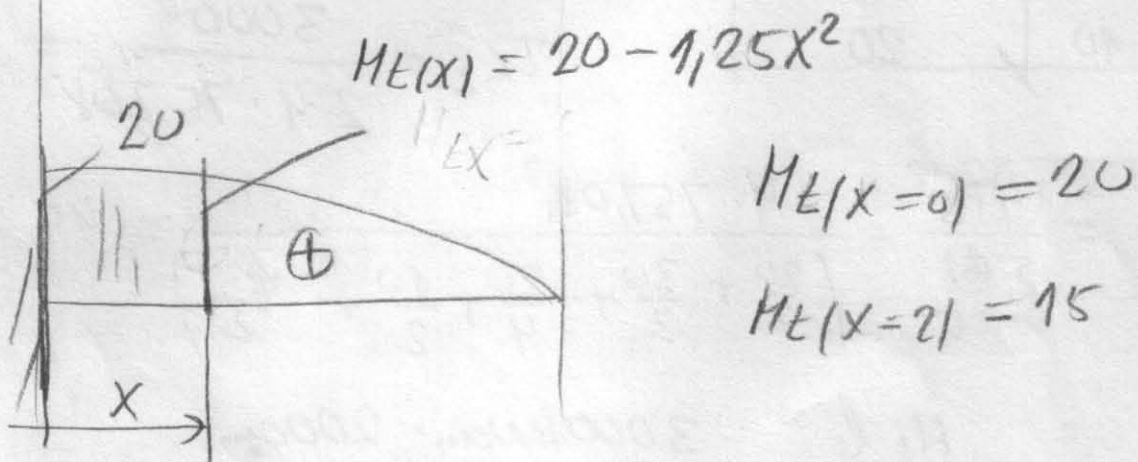 Mt(x) = 20 - 1,25x²
20
Mtx =
Mt(x=0) = 20
⊕
Mt(x=2) = 15
x